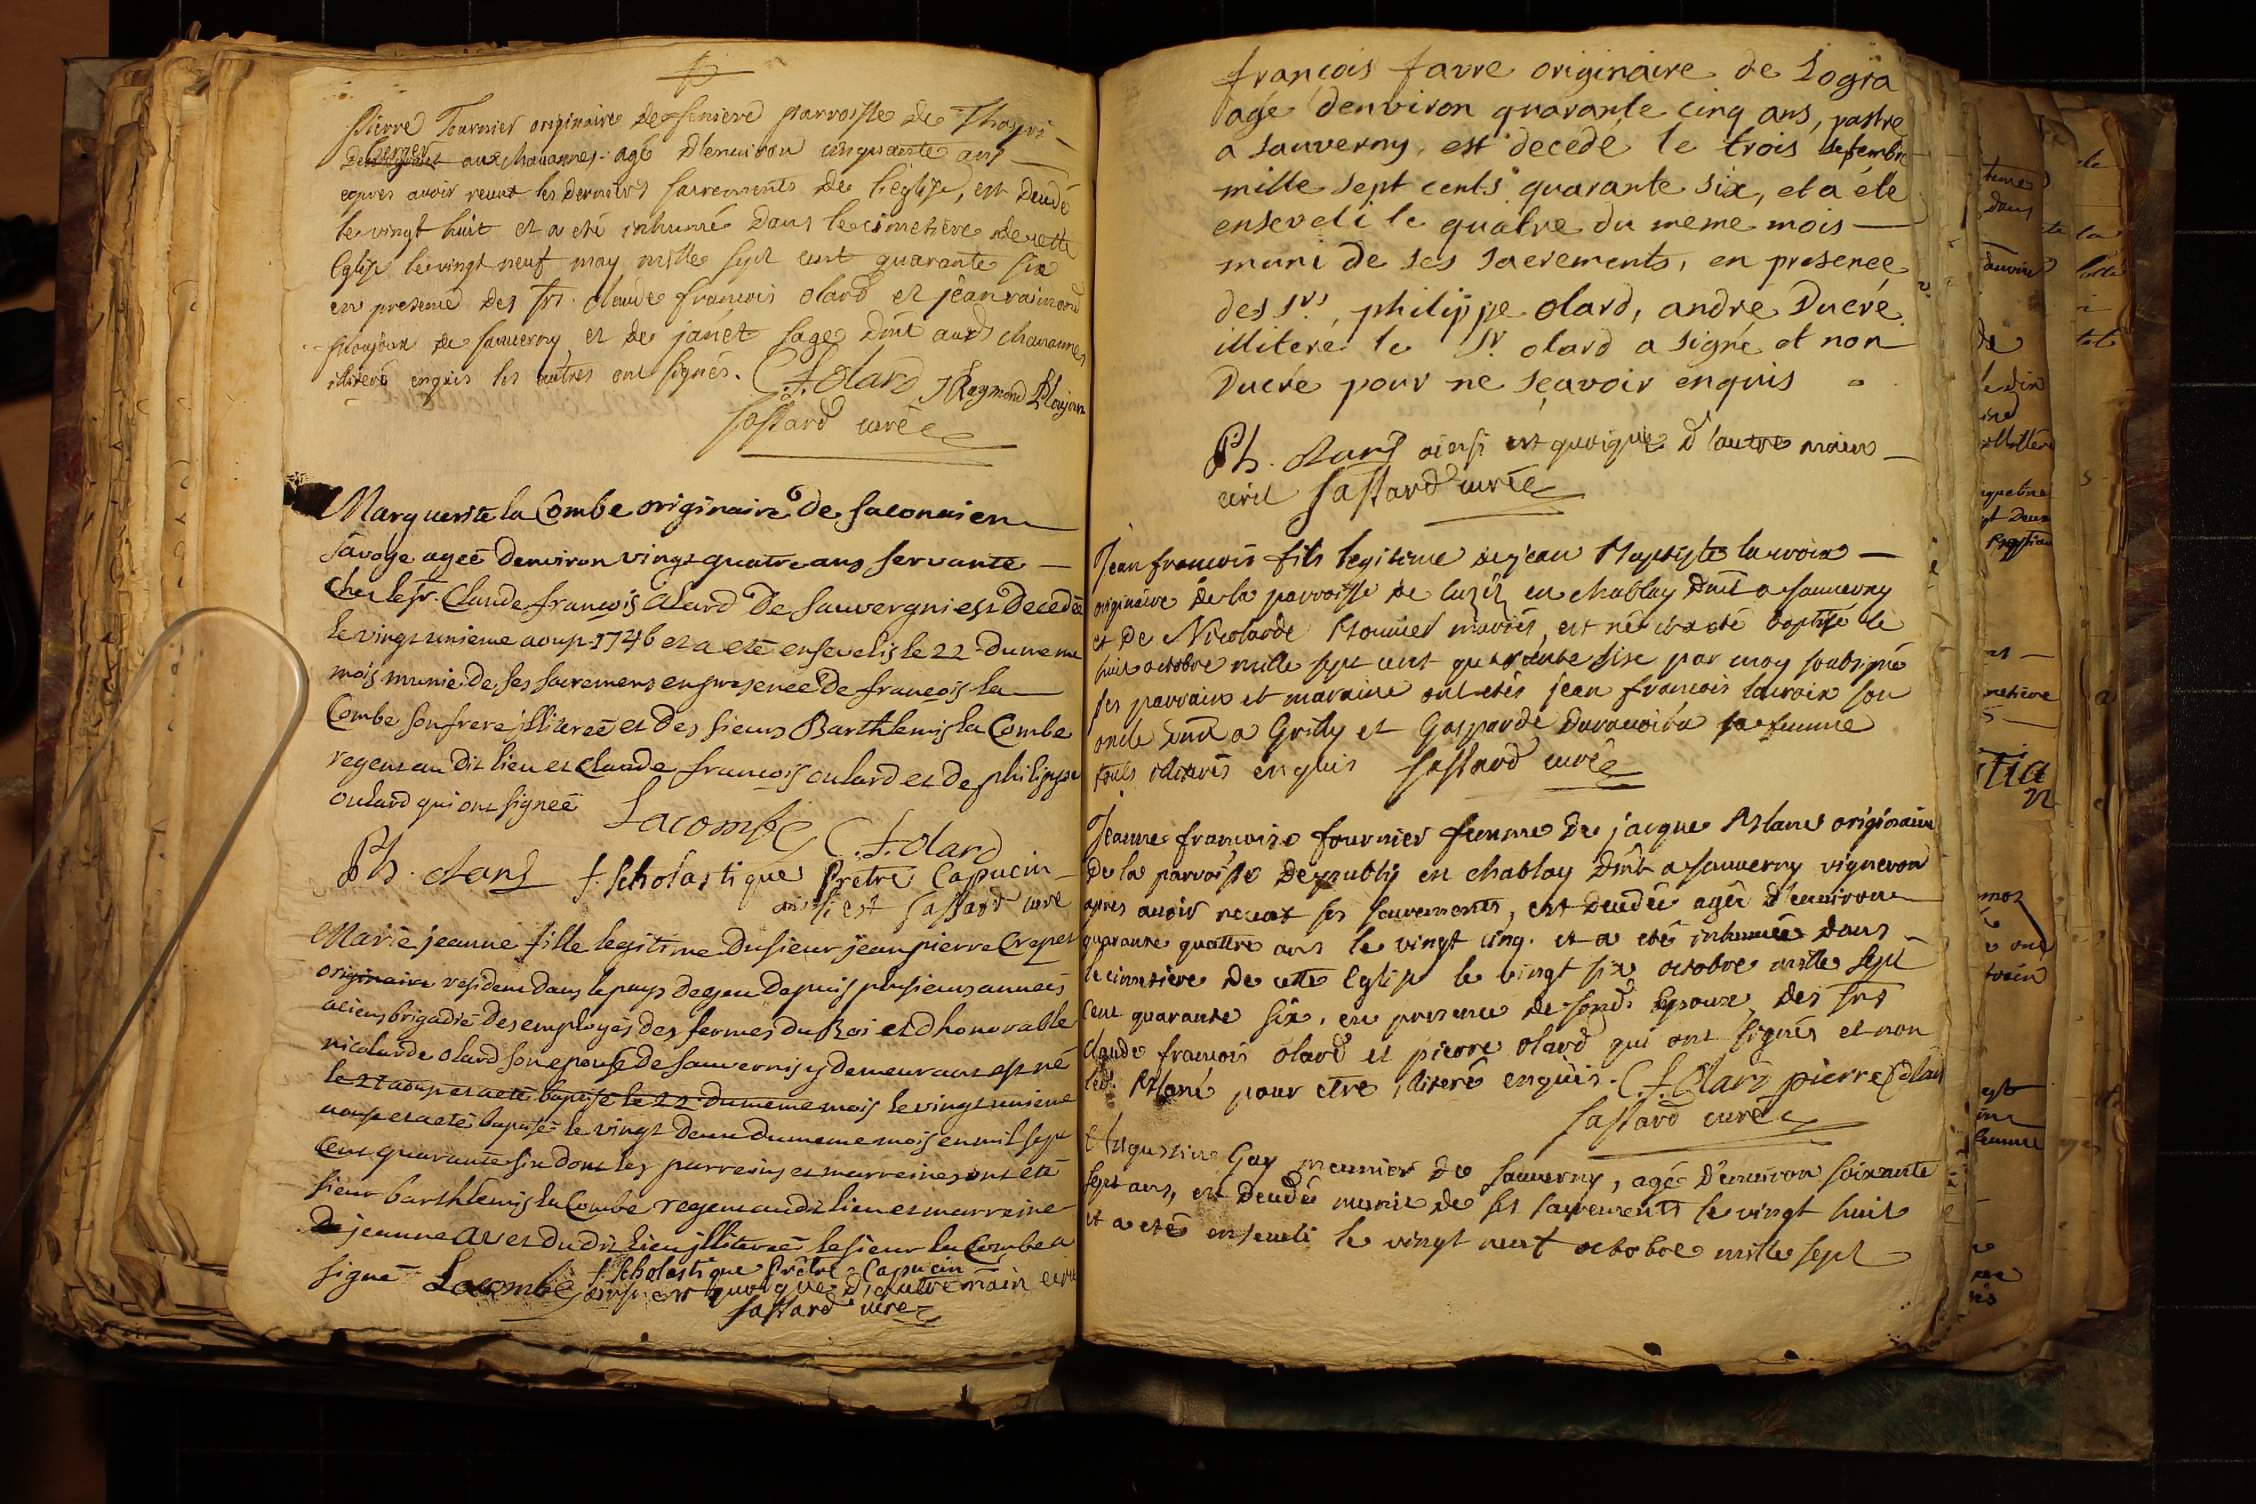 Pierre Fournier originaire de parroisse de
berger aux chavannes agé d'environ cinquante ans
apres avoir receut les derniers sacrements de l'eglise, est decedé
le vingt huit et a eté inhumé dans le cimetière de cette
Eglise le vingt neuf may mille sept cent quarante six
en presence des Srs. claude francois olard et jean raimond
ploujoux de sauverny et de janet sage dmt auxds chavannes
illiteré enquis les autres ont signés. C. f. olard J Raymond Ploujoux
Sassard curé
Marguerite la Combe originaire de saconnier
savoye ageé denviron vingt quatre ans servante
Chez le sr. Claude francois olard De sauvergni est Decedeé
le vingt unieme aoust 1746 et a eté ensevelis le 22 du meme
mois munie de ses sacremens en presence De francois la
Combe son frere illitereé et des sieurs Barthlemis la Combe
regent au dit lieu et claude francois oulard et de philippe
oulard qui ont signeé
Lacombe C. f. olard
Ph. olard f. scholastique Prêtre Capucin
ainsi est Sassard curé
Marie jeanne fille legitime du sieur jean pierre Crepet
originaire resident dans le pays de gex depuis plusieurs anneés
ancien brigadié des employés des fermes du Roi et d honorable
nicolarde olard son epouse de sauvernis y demeurant est né
le 21 aoust et a eté baptisé le 22 du meme mois le vingt unieme
aoust et a eté baptiseé le vingt deux du meme mois en mil sept
Cent quarante six dont les parreins et marreines ont été
sieur barthlemis la Combe regent audit lieu et marreine
De jeanne du dit lieu illitereé le sieur la Combe a
signé Lacombe f. scholastique Prêtre Capucin
ainsi est quoique d'autre main ecrit
Sassard curé
françois favre originaire de Logra
agé denviron quarante cinq ans, pastre
a sauverny, est decedé le trois septembre
mille sept cents quarante six, et a été
enseveli le quatre du meme mois
muni de ses sacrements, en presence
des srs, philippe olard, andré Ducré
illiteré le sr olard a signé et non
Ducré pour ne sçavoir enquis
Ph. olard ainsi est quoique d'autre main
ecrit Sassard curé
Jean francois fils legitime de jean Baptiste lacroix
originaire de la parroisse de en chablay dmt a sauverny
et de Nicolarde mariés, est né et a eté baptisé le
huit octobre mille sept cent quarante six par moy soubsigné
ses parrain et maraine ont etés jean francois lacroix son
oncle dmt a Grilly et Gasparde sa femme
touts illiterés enquis Sassard curé
Jeanne francoise fournier femme de jacque Blanc originaire
de la parroisse de publy en chablay dmt a sauverny vigneron
apres avoir receut ses sacrements, est decedée agée d'environ
quarante quattre ans le vingt cinq. et a eté inhumée dans
le cimetière de cette Eglise le vingt six octobre mille sept
cent quarante six, en presence de sond. Epoux, des srs
claude francois olard et pierre olard qui ont signés et non
led. Blanc pour etre illiteré enquis. C. f. olard pierre olard
Sassard curé
Augustin Gay meunier de sauverny, agé d'environ soixante
sept ans, est decedé munie de ses sacrements le vingt huit
et a eté enseveli le vingt neuf octobre mille sept